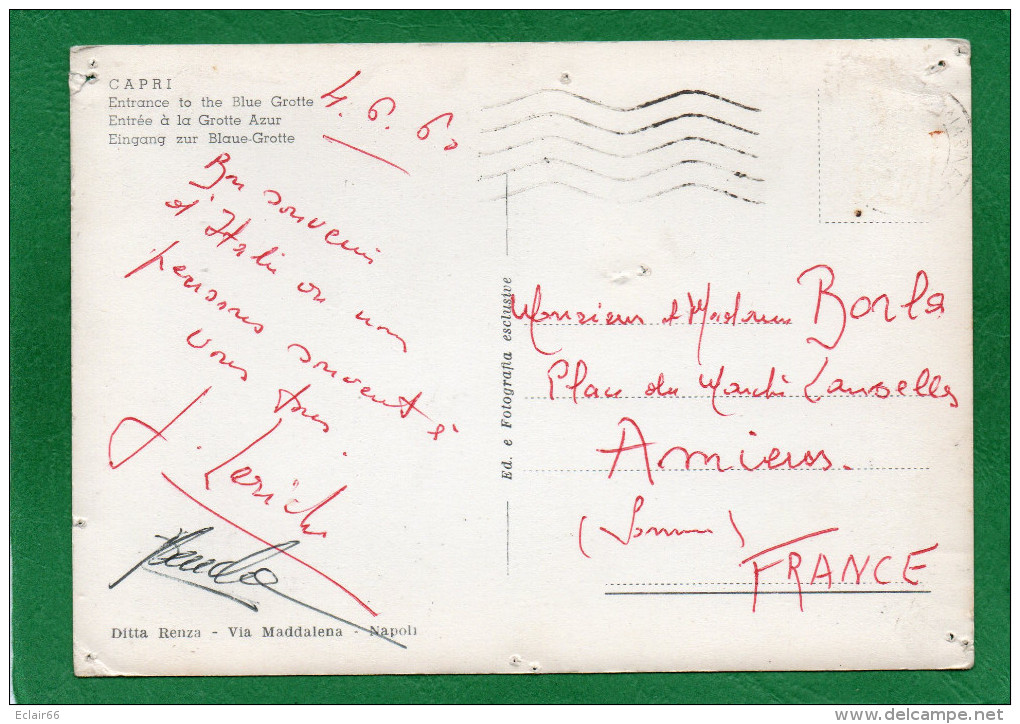 CAPRI
Entrance to the Blue Grotte
Entrée à la Grotte Azur
Eingang zur Blaue-Grotte
4.6.60
Bon souvenir
d'Italie ou nous
pensons souvent à
vous tous
J. Lerich
Ditta Renza - Via Maddalena - Napoli
Ed. e Fotografia esclusive
Monsieur et Madame Borla
Place du Marché Lanselles
Amiens.
(Somme)
FRANCE
Eclair66
delcampe.net